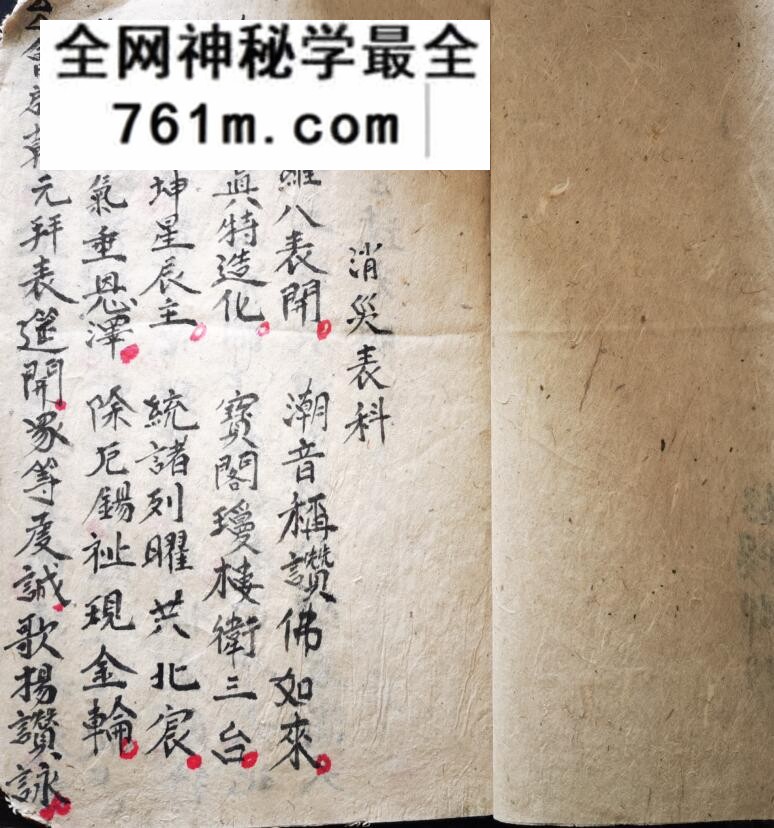 全网神秘学最全
761m.com
消災表科
羅八表開 潮音稱讚佛如來
真特造化 寶閣瓊樓衛三台
坤星辰主 統諸列曜共北宸
氣垂恩澤 除厄錫祉現金輪
元拜表進開 眾等虔誠 歌揚讚詠